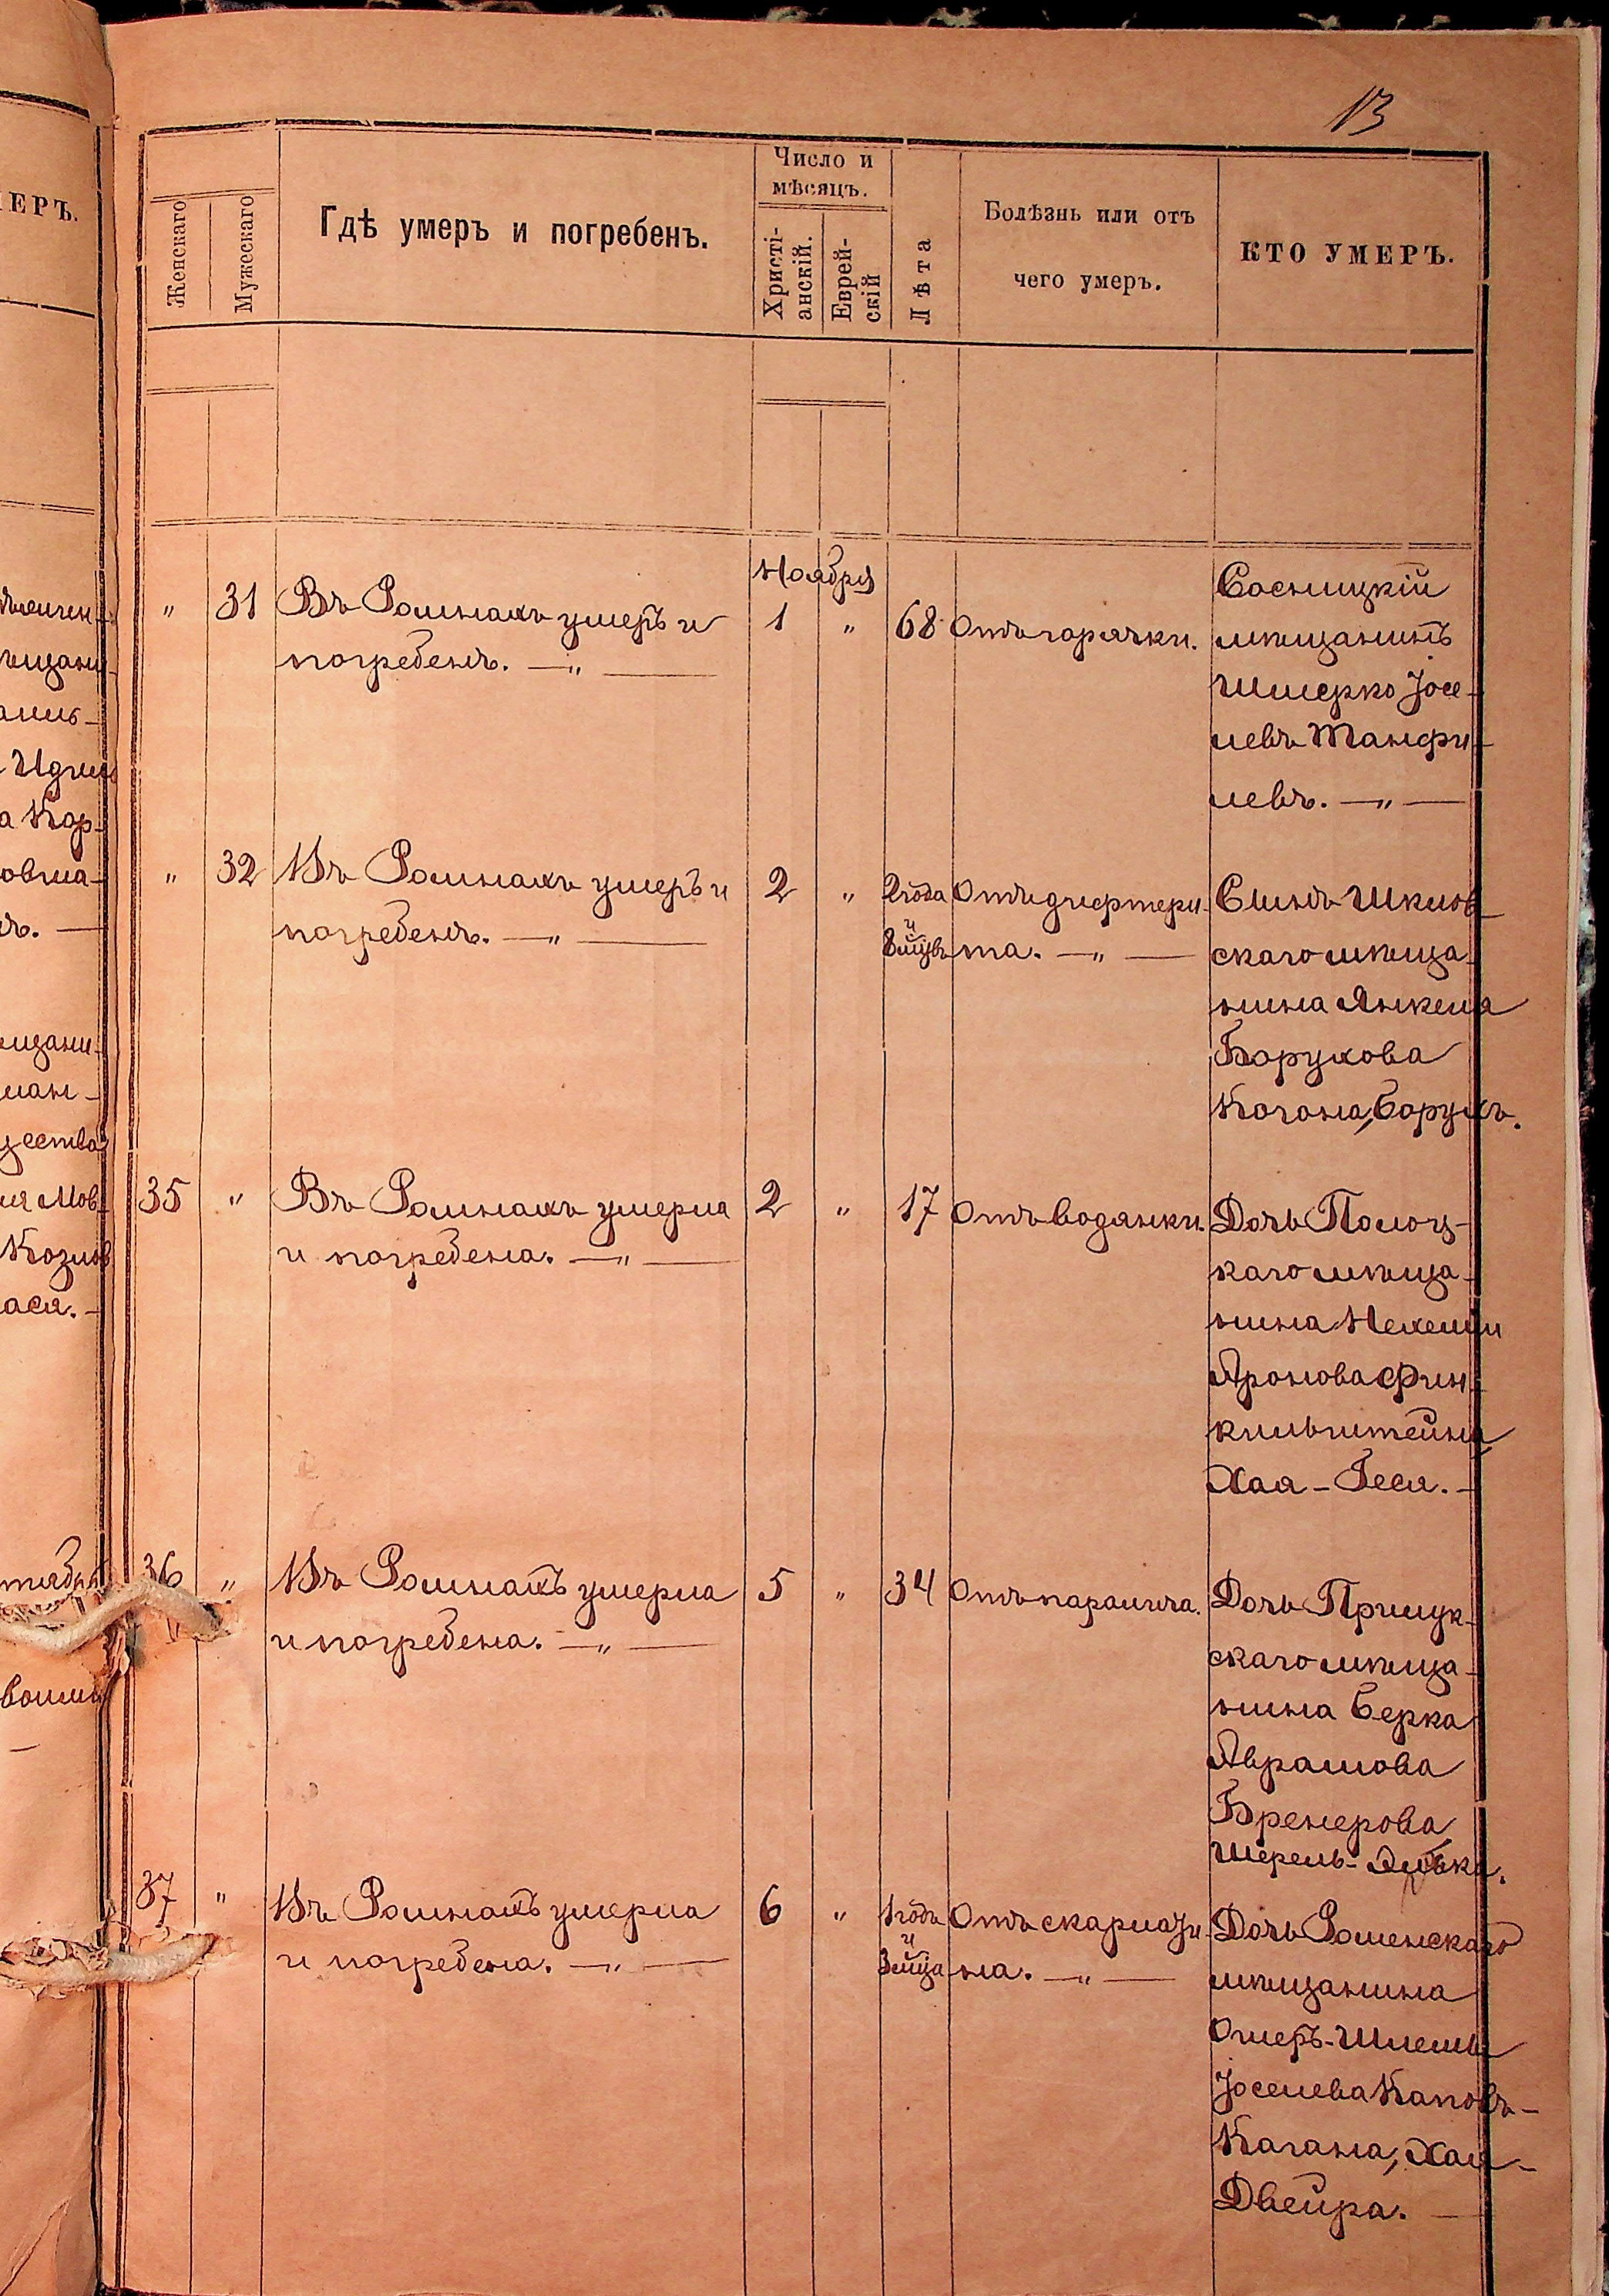 13
Женскаго
Мужескаго
Гдѣ умеръ и погребенъ.
Число и
мѣсяцъ.
Христі-
анскій.
Еврей-
скій
Лѣта
Болѣзнь или отъ
чего умеръ.
КТО УМЕРЪ.
ЕРЪ.
Ноября
„ 31 Въ Ромнахъ умеръ и
погребенъ. —„—
1 „ 68 Отъ горячки.
Сосницкій
мѣщанинъ
Шмерко Іосе-
левъ Танфи-
левъ. —„—
„ 32 Въ Ромнахъ умеръ и
погребенъ. —„—
2 „ 2 года
и
8 мцвъ
Отъ дифтери-
та. —„—
Сынъ Шклов-
скаго мѣща-
нина Янкеля
Борухова
Когона, Борухъ.
35 „ Въ Ромнахъ умерла
и погребена. —„—
2 „ 17 Отъ водянки.
Дочь Полоц-
каго мѣща-
нина Нехеміи
Аронова Фин-
кильштейна
Хая-Геся. —
36 „ Въ Ромнахъ умерла
и погребена. —„—
5 „ 34 Отъ паралича.
Дочь Прилук-
скаго мѣща-
нина Берка
Аврамова
Бренерова
Шерель-
37 „ Въ Ромнахъ умерла
и погребена. —„—
6 „ 1 годъ
и
3 мца
Отъ скарлати-
на. —„—
Дочь Роменскаго
мѣщанина
Ошеръ-Шлемы
Іоселева Каповъ-
Кагана, Хая-
Двейра. —